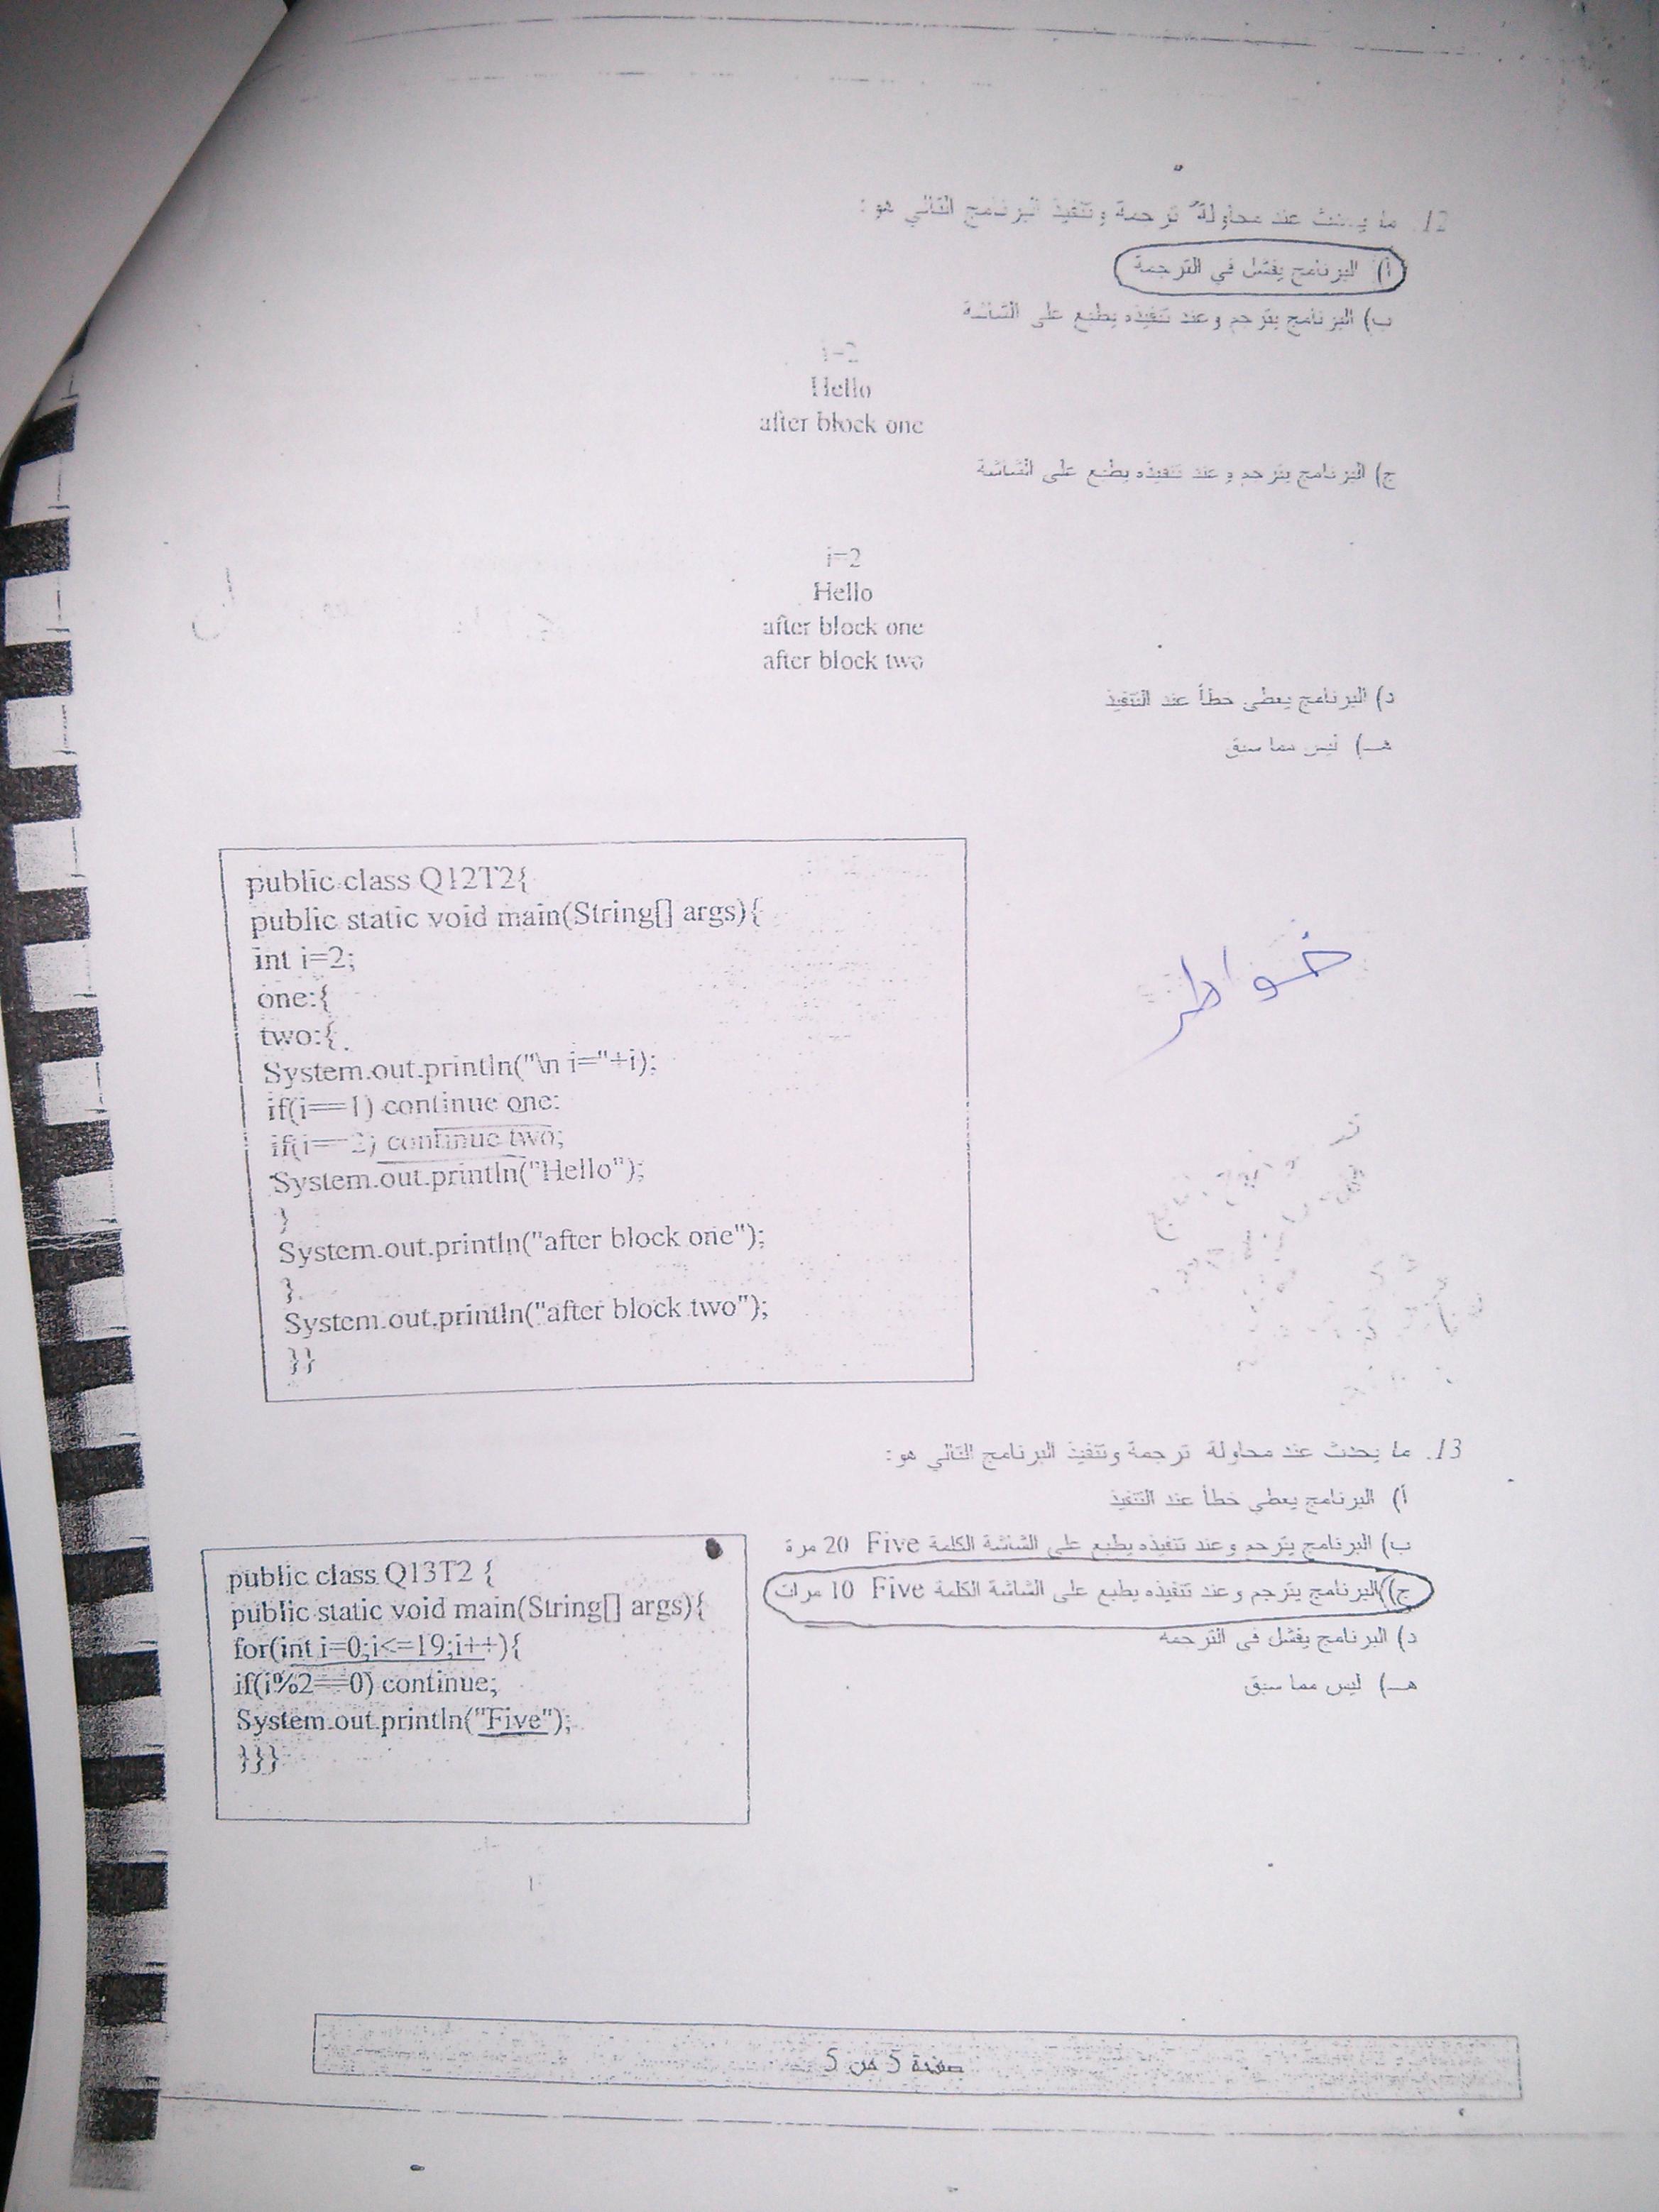 12. ما يحدث عند محاولة ترجمة وتنفيذ البرنامج التالي هو:
أ) البرنامج يفشل في الترجمة
ب) البرنامج يترجم وعند تنفيذه يطبع على الشاشة
i=2
Hello
after block one
ج) البرنامج يترجم وعند تنفيذه يطبع على الشاشة
i=2
Hello
after block one
after block two
د) البرنامج يعطي خطأ عند التنفيذ
هـ) ليس مما سبق
public class Q12T2{
public static void main(String[] args){
int i=2;
one:{
two:{
System.out.println("\n i="+i);
if(i==1) continue one;
if(i==2) continue two;
System.out.println("Hello");
}
System.out.println("after block one");
}
System.out.println("after block two");
}}
خواطر
13. ما يحدث عند محاولة ترجمة وتنفيذ البرنامج التالي هو:
أ) البرنامج يعطي خطأ عند التنفيذ
ب) البرنامج يترجم وعند تنفيذه يطبع على الشاشة الكلمة Five 20 مرة
ج) البرنامج يترجم وعند تنفيذه يطبع على الشاشة الكلمة Five 10 مرات
د) البرنامج يفشل في الترجمة
هـ) ليس مما سبق
public class Q13T2 {
public static void main(String[] args){
for(int i=0;i<=19;i++){
if(i%2==0) continue;
System.out.println("Five");
}}}
صفحة 5 من 5